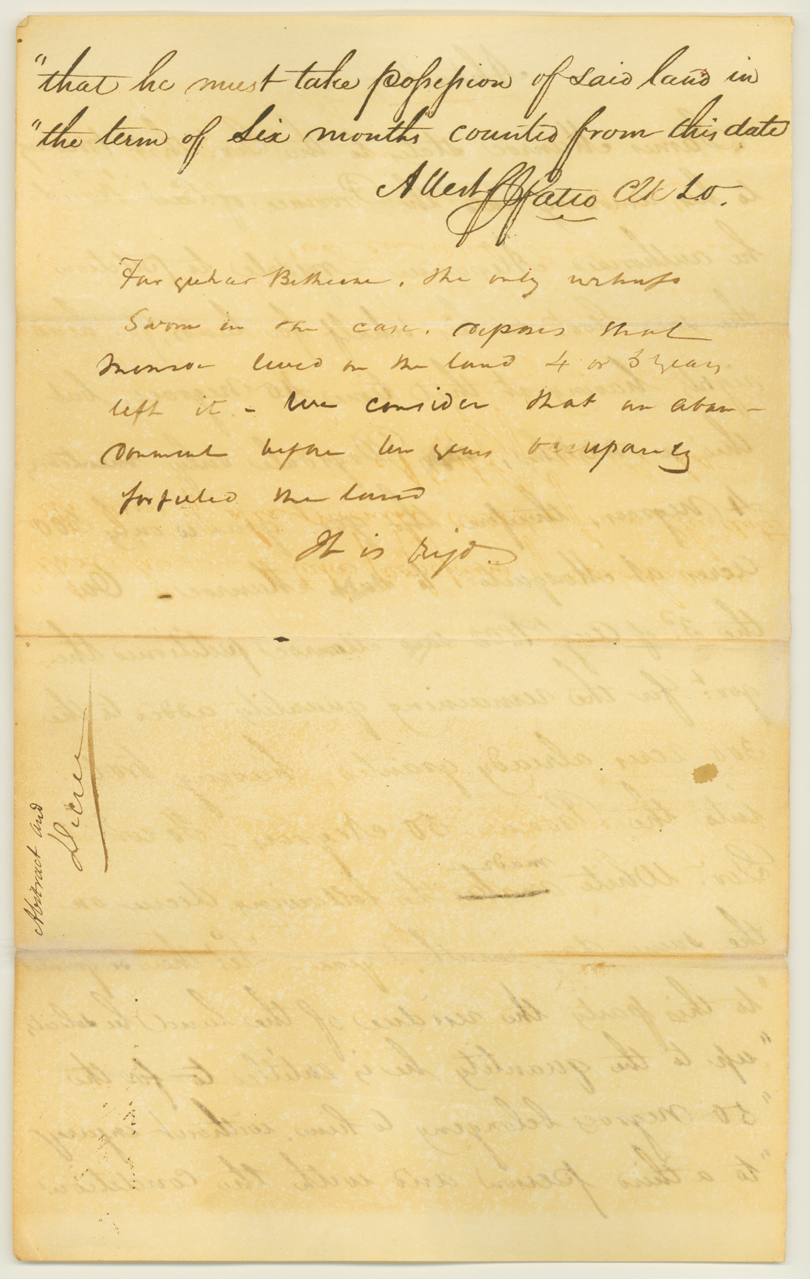 "that he must take possession of said land in
"the term of six months counted from this date
Attest F J Fatio Clk L O.
Farquhar Bethune, the only witness
Sworn in the case. deposes that
Monroe lived on the land 4 or 5 years
left it - We consider that an aban-
donment before ten years occupancy
forfeited the land
It is rejd.
Abstract and
Decree